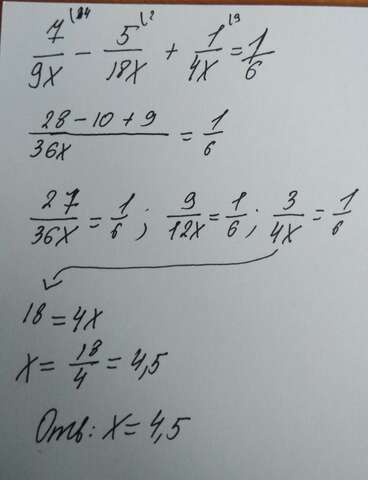 7/9x \4 − 5/18x \2 + 1/4x \9 = 1/6
28 − 10 + 9/36x = 1/6
27/36x = 1/6; 9/12x = 1/6; 3/4x = 1/6
18 = 4x
x = 18/4 = 4,5
Отв: x = 4,5